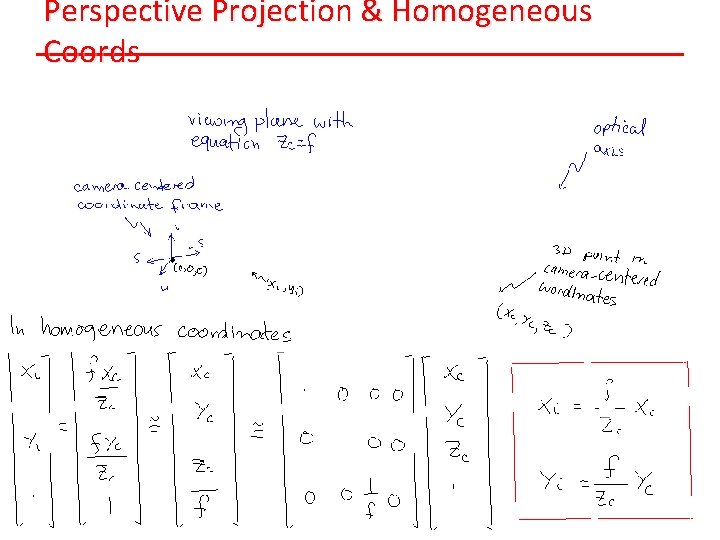 Perspective Projection & Homogeneous
Coords
viewing plane with
equation Zc=f
optical
axis
camera centered
coordinate frame
(0,0,0)
(xi, yi)
3D point in
camera-centered
coordinates
(Xc, Yc, Zc)
In homogeneous coordinates
[xi yi ·] = [f Xc/Zc f Yc/Zc 1] ≅ [Xc Yc Zc/f] ≅ [· 0 0 0; 0 0 0; 0 0 1/f 0] [Xc Yc Zc 1]
xi = f/Zc Xc
Yi = f/Zc Yc